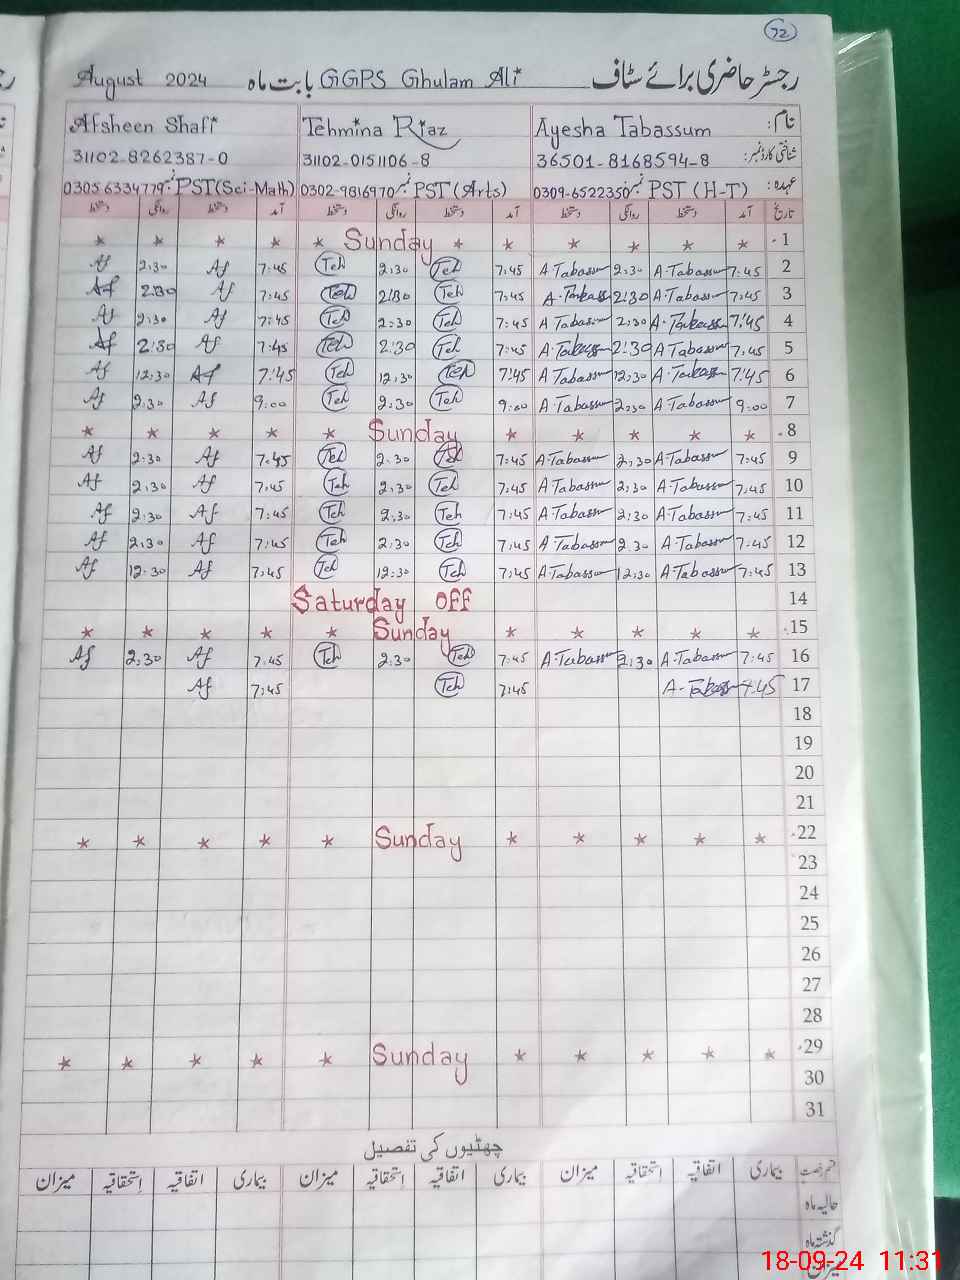 72
August 2024 بابت ماہ GGPS Ghulam Ali رجسٹر حاضری برائے سٹاف
Afsheen Shafi Tehmina Riaz Ayesha Tabassum نام:
31102-8262387-0 31102-0151106-8 36501-8168594-8 شناختی کارڈ نمبر:
0305-6334779 نمبر PST(Sci-Math) 0302-9816970 نمبر PST(Arts) 0309-6522350 نمبر PST (H-T) عہدہ:
دستخط روانگی دستخط آمد دستخط روانگی دستخط آمد دستخط روانگی دستخط آمد تاریخ
* * * * * Sunday * * * * * * 1
Af 2:30 Af 7:45 Teh 2:30 Teh 7:45 A Tabassum 2:30 A-Tabassum 7:45 2
Af 2:30 Af 7:45 Teh 2:30 Teh 7:45 A-Tabassum 2:30 A-Tabassum 7:45 3
Af 2:30 Af 7:45 Teh 2:30 Teh 7:45 A Tabassum 2:30 A-Tabassum 7:45 4
Af 2:30 Af 7:45 Teh 2:30 Teh 7:45 A-Tabassum 2:30 A Tabassum 7:45 5
Af 12:30 Af 7:45 Teh 12:30 Teh 7:45 A Tabassum 12:30 A-Tabassum 7:45 6
Af 2:30 Af 9:00 Teh 2:30 Teh 9:00 A-Tabassum 2:30 A Tabassum 9:00 7
* * * * * Sunday * * * * * 8
Af 2:30 Af 7:45 Teh 2:30 Teh 7:45 A-Tabassum 2:30 A-Tabassum 7:45 9
Af 2:30 Af 7:45 Teh 2:30 Teh 7:45 A Tabassum 2:30 A-Tabassum 7:45 10
Af 2:30 Af 7:45 Teh 2:30 Teh 7:45 A-Tabassum 2:30 A-Tabassum 7:45 11
Af 2:30 Af 7:45 Teh 2:30 Teh 7:45 A-Tabassum 2:30 A-Tabassum 7:45 12
Af 12:30 Af 7:45 Teh 12:30 Teh 7:45 A-Tabassum 12:30 A-Tabassum 7:45 13
Saturday OFF 14
* * * * * Sunday * * * * * 15
Af 2:30 Af 7:45 Teh 2:30 Teh 7:45 A-Tabassum 2:30 A-Tabassum 7:45 16
Af 7:45 Teh 7:45 A-Tabassum 7:45 17
18
19
20
21
* * * * * Sunday * * * * * 22
23
24
25
26
27
28
* * * * * Sunday * * * * * 29
30
31
چھٹیوں کی تفصیل
میزان استحقاقیہ اتفاقیہ بیماری میزان استحقاقیہ اتفاقیہ بیماری میزان استحقاقیہ اتفاقیہ بیماری قسم رخصت
حالیہ ماہ
گذشتہ ماہ
میزان
18-09-24 11:31